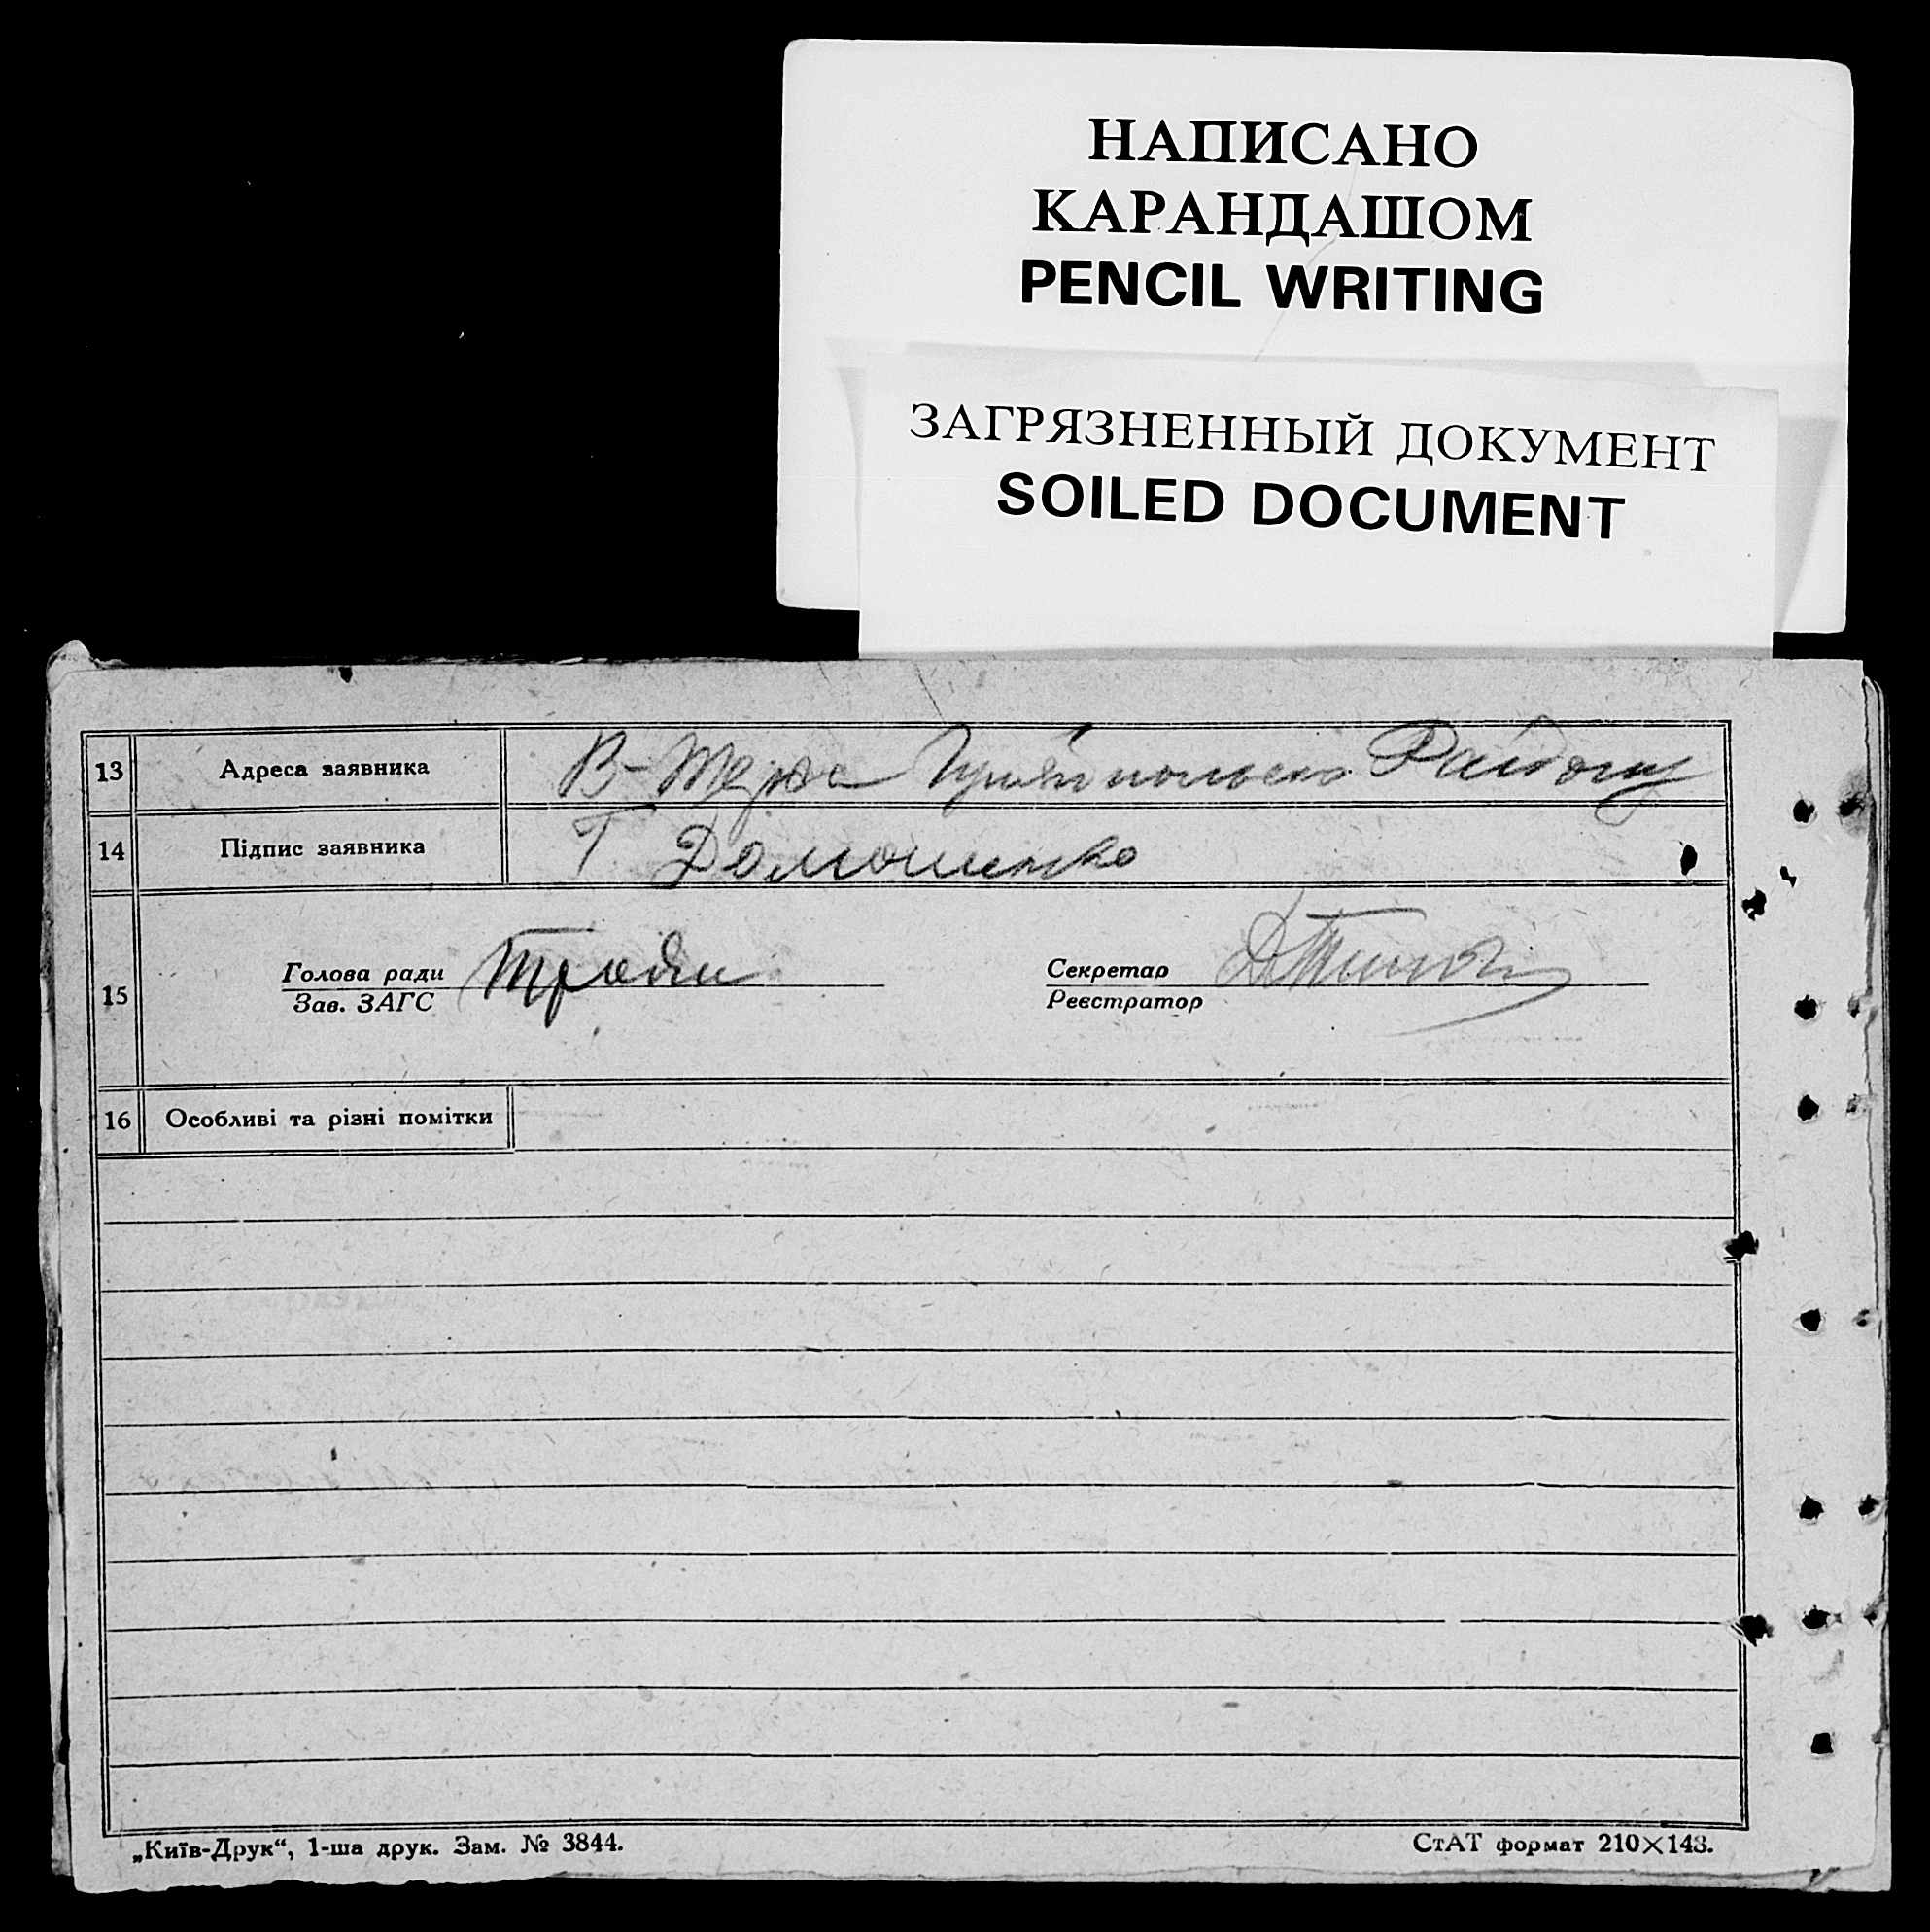 НАПИСАНО
КАРАНДАШОМ
PENCIL WRITING
ЗАГРЯЗНЕННЫЙ ДОКУМЕНТ
SOILED DOCUMENT
13 Адреса заявника В-Терса Району
14 Підпис заявника Т Домашенко
Голова ради Секретар
15
Зав. ЗАГС Реєстратор
16 Особливі та різні помітки
„Київ-Друк“, 1-ша друк. Зам. № 3844. СтАТ формат 210×148.